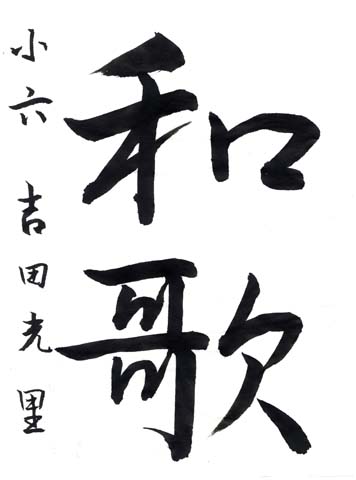 和歌
小六 吉田光里